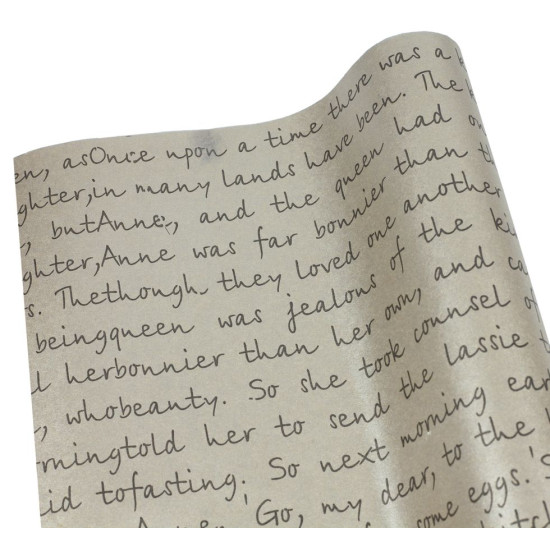 en, asOnce upon a time there was a
ghter,in many lands have been. The
, butAnne, and the queen had
ghter,Anne was far bonnier than
s. Thethough they loved one another
beingqueen was jealous of the
herbonnier than her own, and
, whobeauty. So she took counsel of
rmingtold her to send the lassie
id tofasting; So next morning ear
'Go, my dear, to the
some eggs.'